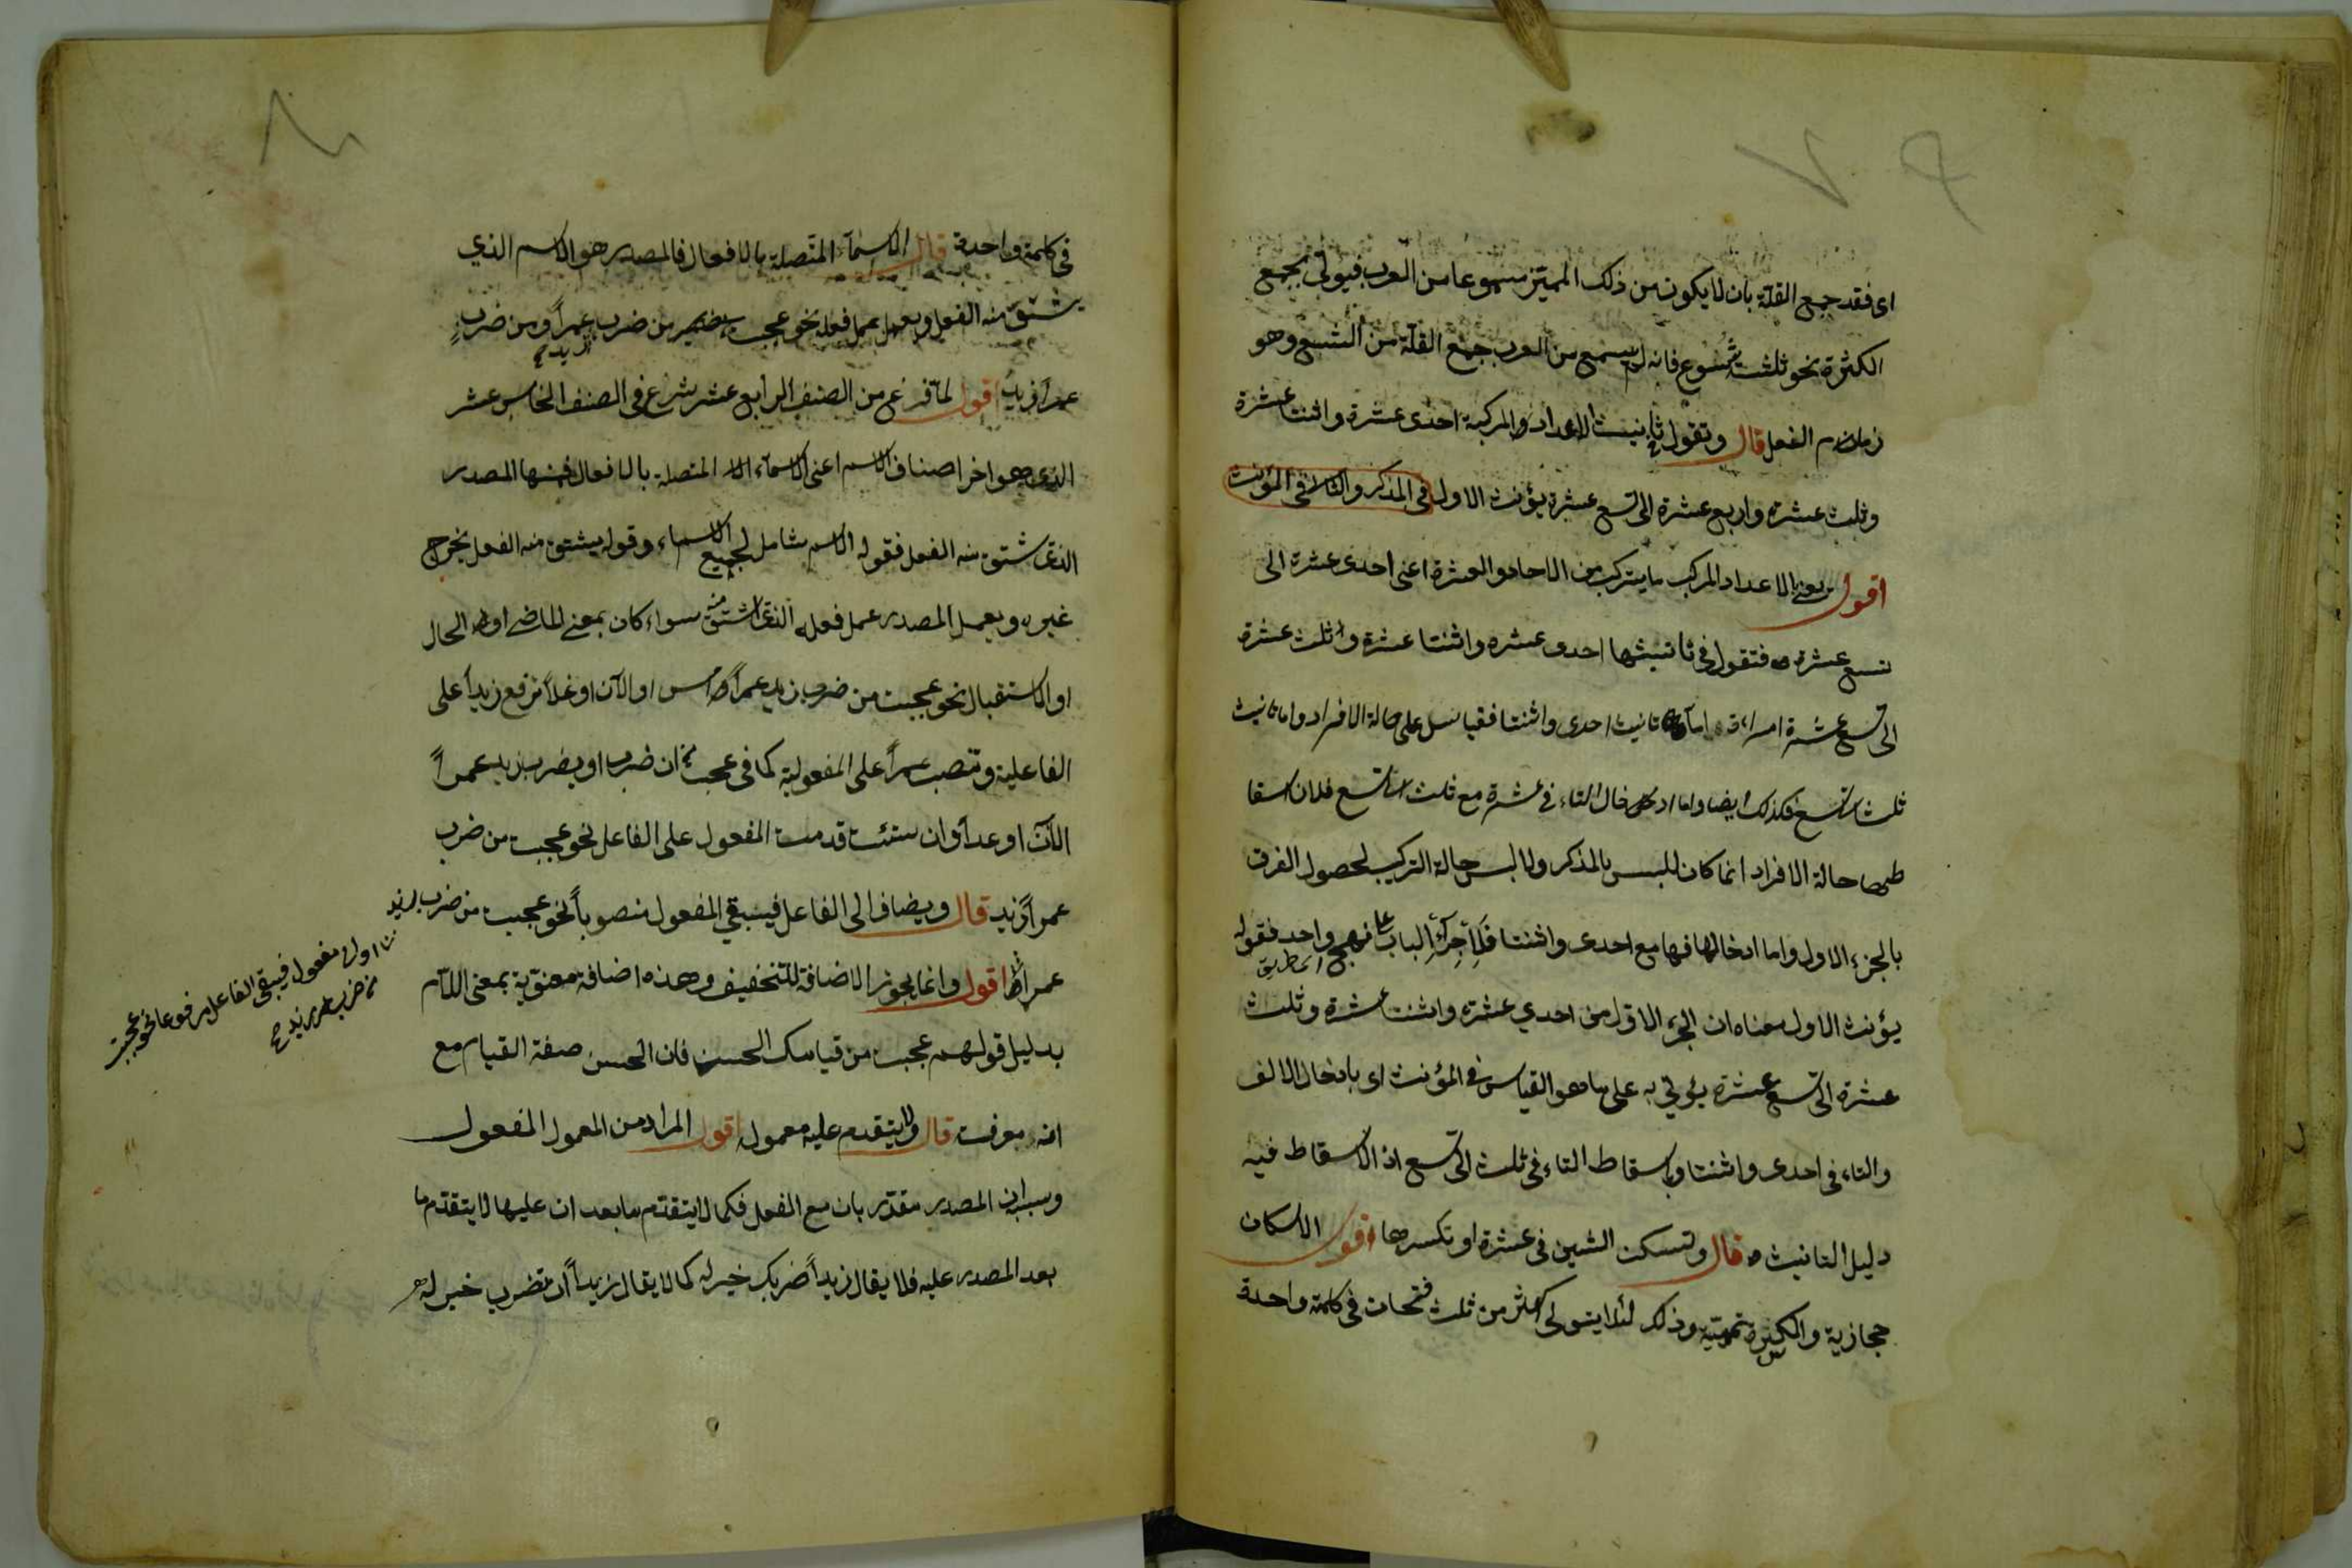 اى فقد جمع القلة بان لا يكون من ذلك المميز مسموعا من العرب فيؤتى بجمع
الكثرة نحو ثلثة شسوع فانه لم يسمع من العرب جمع القلة من الشسع وهو
زمام النعل قال وتقول فى تانيث الاعداد المركبة احدى عشرة واثنتا عشرة
وثلث عشرة واربع عشرة الى تسع عشرة يؤنث الاول فى المذكر والثلا فى المؤنث
اقول يعنى الاعداد المركب ما يتركب من الاحاد والعشرة اعنى احدى عشرة الى
تسع عشرة فتقول فى تانيثها احدى عشرة واثنتا عشرة وثلث عشرة
الى تسع عشرة امراءة اما تانيث احدى واثنتا فقياس على حالة الافراد واما تانيث
ثلث الى تسع فكذلك ايضا واما ادخال التاء فى عشرة مع ثلث الى تسع فلان اسقا
طها حالة الافراد انما كان للبس بالمذكر ولا لبس حالة التركيب لحصول الفرق
بالجزء الاول واما ادخالها فيها مع احدى واثنتا فلاجراء الباب على نهج واحد فقوله
اى طريق
يؤنث الاول معناه ان الجزء الاول من احدي عشرة واثنتا عشرة وثلث
عشرة الى تسع عشرة يؤتي به على ما هو القياس فى المؤنث اى بادخال الالف
والتاء فى احدى واثنتا وباسقاط التاء فى ثلث الى تسع اذ الاسقاط فيه
دليل التانيث قال وتسكن الشين فى عشرة او تكسرها اقول الاسكان
حجازية والكسرة تميمية وذلك لئلا يتولى اكثر من ثلث فتحات فى كلمة واحدة
فى كلمة واحدة قال الاسماء المتصلة بالافعال فالمصدر هو الاسم الذي
يشتق منه الفعل ويعمل عمل فعله نحو عجبت من ضرب زيد عمراً ومن ضربٍ
عمراً زيدٌ اقول لما فرغ من الصنف الرابع عشر شرع فى الصنف الخامس عشر
الذى هو اخر اصناف الاسم اعنى الاسماء المتصلة بالافعال فمنها المصدر
الذى يشتق منه الفعل فقوله الاسم شامل لجميع الاسماء وقوله يشتق منه الفعل يخرج
غيره ويعمل المصدر عمل فعله الذى اشتق منه سواء كان بمعنى الماضى او الحال
او الاستقبال نحو عجبت من ضرب زيد عمراً امس او الآن او غداً ترفع زيداً على
الفاعلية وتنصب عمراً على المفعولية كما فى عجبت من ان ضرب او يضرب زيد عمراً
الآن او غداً وان شئت قدمت المفعول على الفاعل نحو عجبت من ضرب
عمراً زيد قال ويضاف الى الفاعل فيبقي المفعول منصوباً نحو عجبت من ضرب زيد
عمراً اقول وانما يجوز الاضافة للتخفيف وهذه اضافة معنوية بمعنى اللام
بدليل قولهم عجبت من قيامك الحسن فان الحسن صفة القيام مع
انه معرفة قال ولا يتقدم عليه معموله اقول المراد من المعمول المفعول
وسببه ان المصدر مقدر بان مع الفعل فكما لا يتقدم ما بعد ان عليها لا يتقدم ما
بعد المصدر عليه فلا يقال زيداً ضربك خير له كما لا يقال زيداً ان تضرب خير له
او الى المفعول فيبقى الفاعل مرفوعا نحو عجبت
من ضرب عمر زيد صح